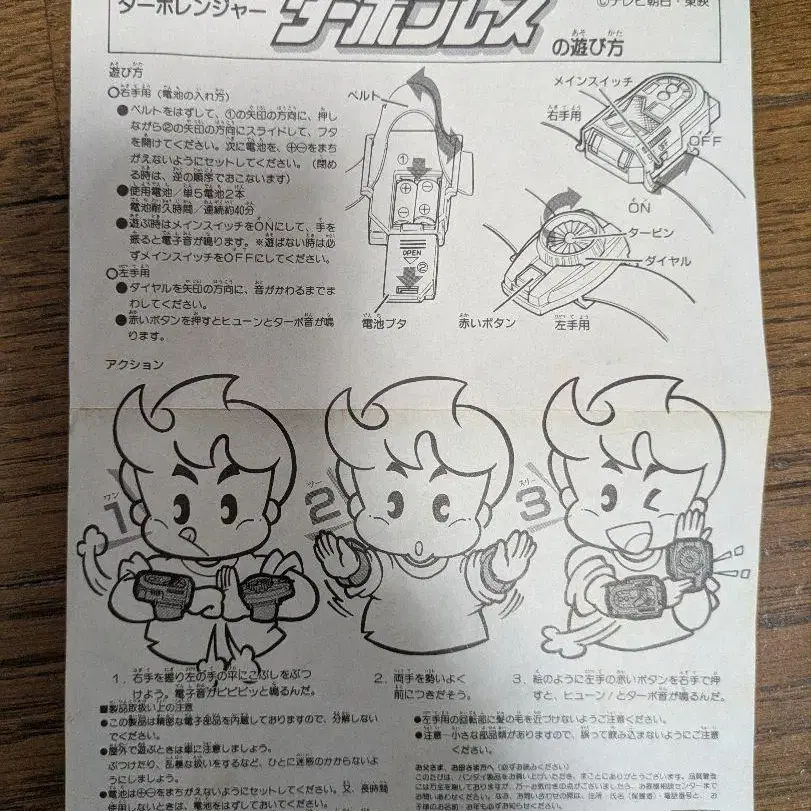 ターボレンジャー ターボブレス の遊び方
©テレビ朝日・東映
遊び方
○右手用(電池の入れ方)
●ベルトをはずして、①の矢印の方向に、押し
ながら②の矢印の方向にスライドして、フタ
を開けてください。次に電池を、⊕⊖をまち
がえないようにセットしてください。(閉め
る時は、逆の順序でおこないます)
●使用電池/単5電池2本
電池耐久時間/連続約40分
●遊ぶ時はメインスイッチをONにして、手を
振ると電子音が鳴ります。※遊ばない時は必
ずメインスイッチをOFFにしてください。
○左手用
●ダイヤルを矢印の方向に、音がかわるまでま
わしてください。
●赤いボタンを押すとヒューンとターボ音が鳴
ります。
ベルト
①
OPEN
②
電池ブタ
メインスイッチ
右手用
OFF
ON
タービン
ダイヤル
赤いボタン
左手用
アクション
ワン
1
ツー
2
スリー
3
1. 右手を握り左の手の平にこぶしをぶつ
けよう。電子音がピピピッと鳴るんだ。
2. 両手を勢いよく
前につきだそう。
3. 絵のように左手の赤いボタンを右手で押
すと、ヒューン!とターボ音が鳴るんだ。
■製品取扱い上の注意
●この製品は精密な電子部品を内蔵しておりますので、分解しない
でください。
●屋外で遊ぶときは車に注意しましょう。
ぶつけたり、乱暴な扱いをするなど、ひとに迷惑のかからないよ
うにしましょう。
●電池は⊕⊖をまちがえないようにセットしてください。又、長時間
使用しないときは、電池をはずしておいてください。
●左手用の回転部に髪の毛を近づけないようご注意ください。
●注意―小さな部品類がありますので、誤って飲み込まないようにご注意
ください。
お父さま、お母さま方へ(必ずお読みください)
このたびは、バンダイ製品をお買い上げいただき、まことにありがとうございます。品質管理
には万全を期しておりますが、万一お気付きの点がございましたら、お客様相談センターまで
お問い合わせください。なお、お問い合わせの際は、住所・氏名(保護者)・電話番号と、お
子様のお名前・お年もお知らせください。